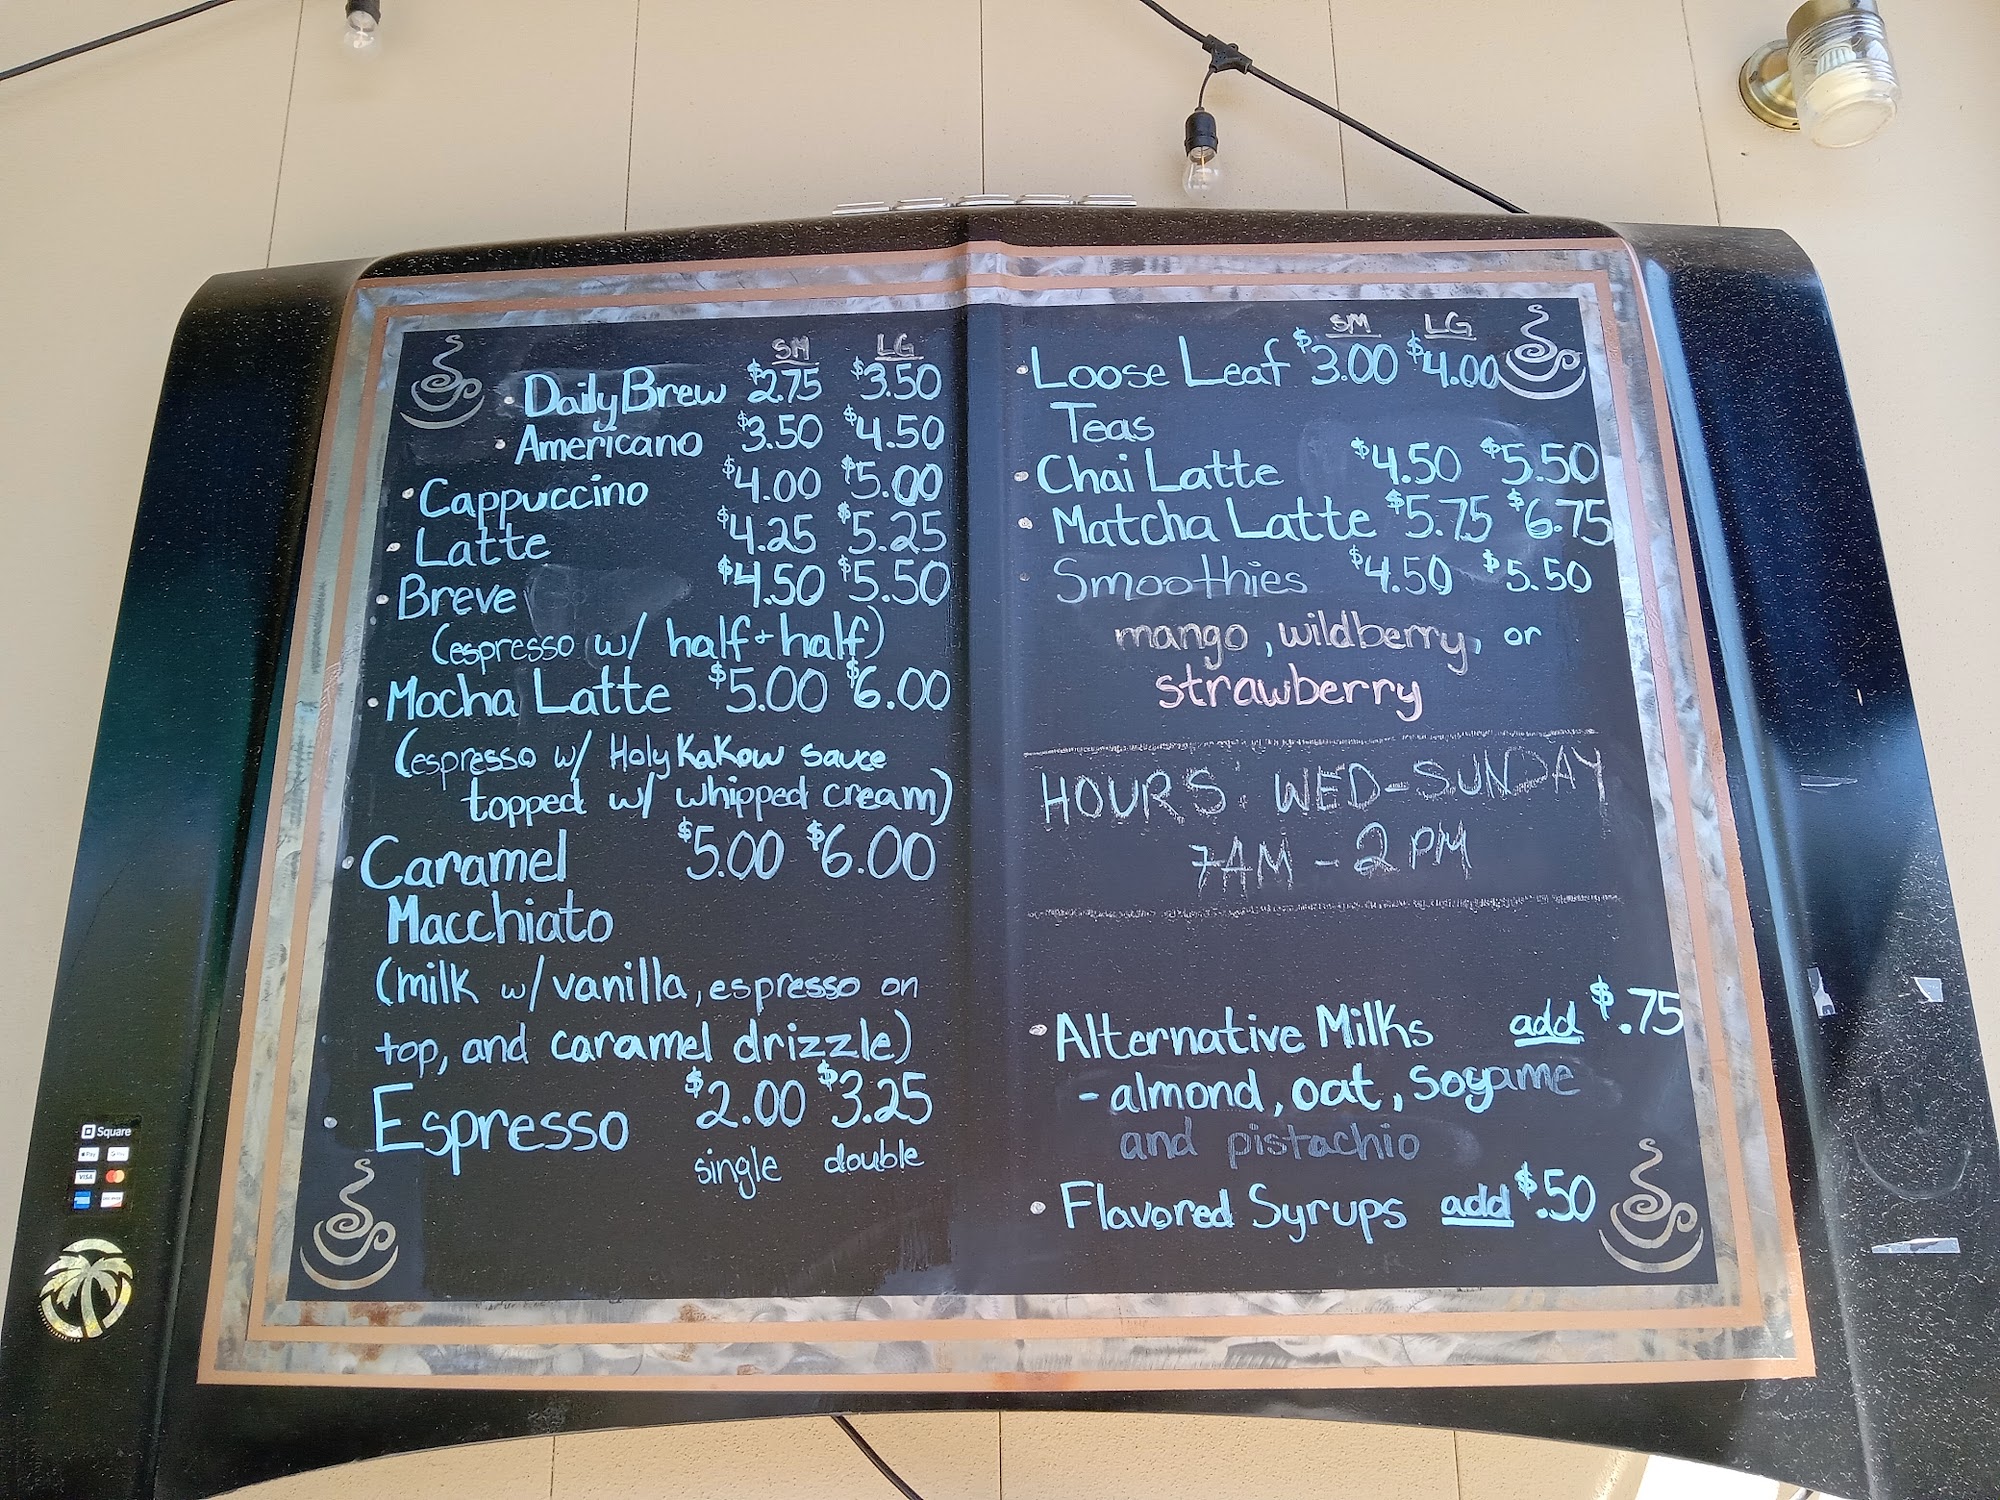 SM LG
• Daily Brew $2.75 $3.50
• Americano $3.50 $4.50
• Cappuccino $4.00 $5.00
• Latte $4.25 $5.25
• Breve $4.50 $5.50
(espresso w/ half + half)
• Mocha Latte $5.00 $6.00
(espresso w/ Holy Kakow sauce
topped w/ whipped cream)
• Caramel $5.00 $6.00
Macchiato
(milk w/ vanilla, espresso on
top, and caramel drizzle)
• Espresso $2.00 $3.25
single double
SM LG
• Loose Leaf $3.00 $4.00
Teas
• Chai Latte $4.50 $5.50
• Matcha Latte $5.75 $6.75
• Smoothies $4.50 $5.50
mango, wildberry, or
strawberry
HOURS: WED-SUNDAY
7AM - 2 PM
• Alternative Milks add $.75
- almond, oat, soyame
and pistachio
• Flavored Syrups add $.50
Square
Pay G Pay
VISA